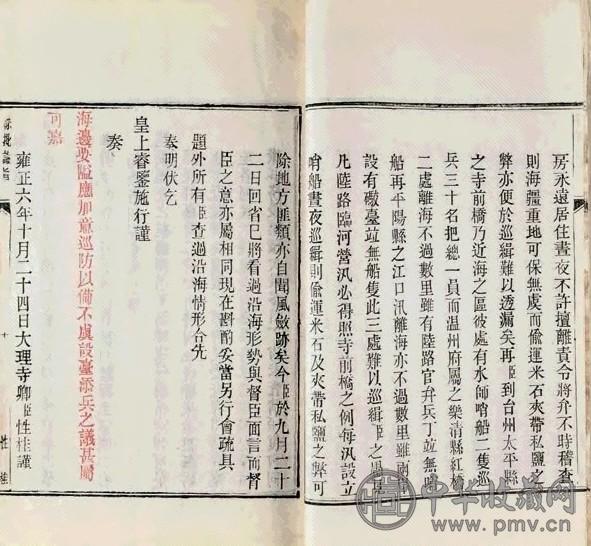 房永遠居住晝夜不許擅離責令將弁不時稽查
則海疆重地可保無虞而偷運米石夾帶私鹽之
弊亦便於巡緝難以透漏矣再臣到台州太平縣
之寺前橋乃近海之區彼處有水師哨船二隻巡
兵三十名把總一員而温州府屬之樂清縣紅橋
二處離海不過數里雖有陸路官弁兵丁並無哨
船再平陽縣之江口汛離海亦不過數里雖兩
設有礮臺並無船隻此三處難以巡緝臣之愚
凡陸路臨河營汛必得照寺前橋之例每汛設立
哨船晝夜巡緝則偷運米石及夾帶私鹽之弊可
除地方匪類亦自聞風斂跡矣今臣於九月二十
二日回省已將看過沿海形勢與督臣面言而督
臣之意亦屬相同現在斟酌妥當另行會疏具
題外所有臣查過沿海情形合先
奏明伏乞
皇上睿鑒施行謹
奏
海邊要隘應加意巡防以備不虞設臺添兵之議甚屬
可嘉
雍正六年十月二十四日大理寺卿臣性桂謹
硃批諭旨
十
性桂
中华收藏网
www.pmv.cn